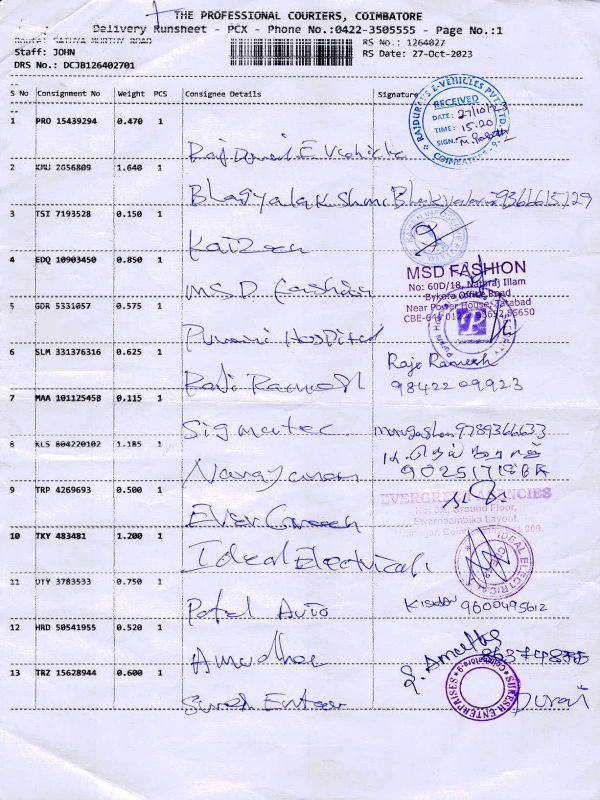 THE PROFESSIONAL COURIERS, COIMBATORE
Delivery Runsheet - PCX - Phone No.:0422-3505555 - Page No.:1
Staff: JOHN RS No.: 1264027
DRS No.: DCJB126402701 RS Date: 27-Oct-2023
S No Consignment No Weight PCS Consignee Details Signature
RAJDURAI'S E-VEHICLES PVT. LTD.
RECEIVED
DATE: 27/10/23
TIME: 15.20
SIGN:
COIMBATORE-9
1 PRO 15439294 0.470 1
Raj Durai E Vehicle
2 KMU 2G56809 1.640 1
Bhagyalakshmi 9366615129
3 TSI 7193528 0.150 1
Kaizen
4 EDQ 10903450 0.850 1
M.S.D Fashion
MSD FASHION
No: 60D/18, Nataraj Illam
Bykora Office Road
Near Power House, Tatabad
5 GDR 5331057 0.575 1
Purani Hospital
6 SLM 331376316 0.625 1
Raje Ramesh Raje Ramesh
9842209923
7 MAA 101125458 0.115 1
Sigmatec Murugashan 9789366633
8 KLS 804220102 1.185 1
Narayanan
9 TRP 4269693 0.500 1
Ever Green
EVERGREEN AGENCIES
Ground Floor,
Swarnaambika Layout,
10 TKY 483481 1.200 1
Ideal Electricals
IDEAL ELECTRICAL
11 DTY 3783533 0.750 1
Patel Auto Kishor 9600495612
12 HRD 50541955 0.520 1
Amudhas
13 TRZ 15628944 0.600 1
Suresh Enter
SURESH ENTERPRISES
Coimbatore-9
Durai